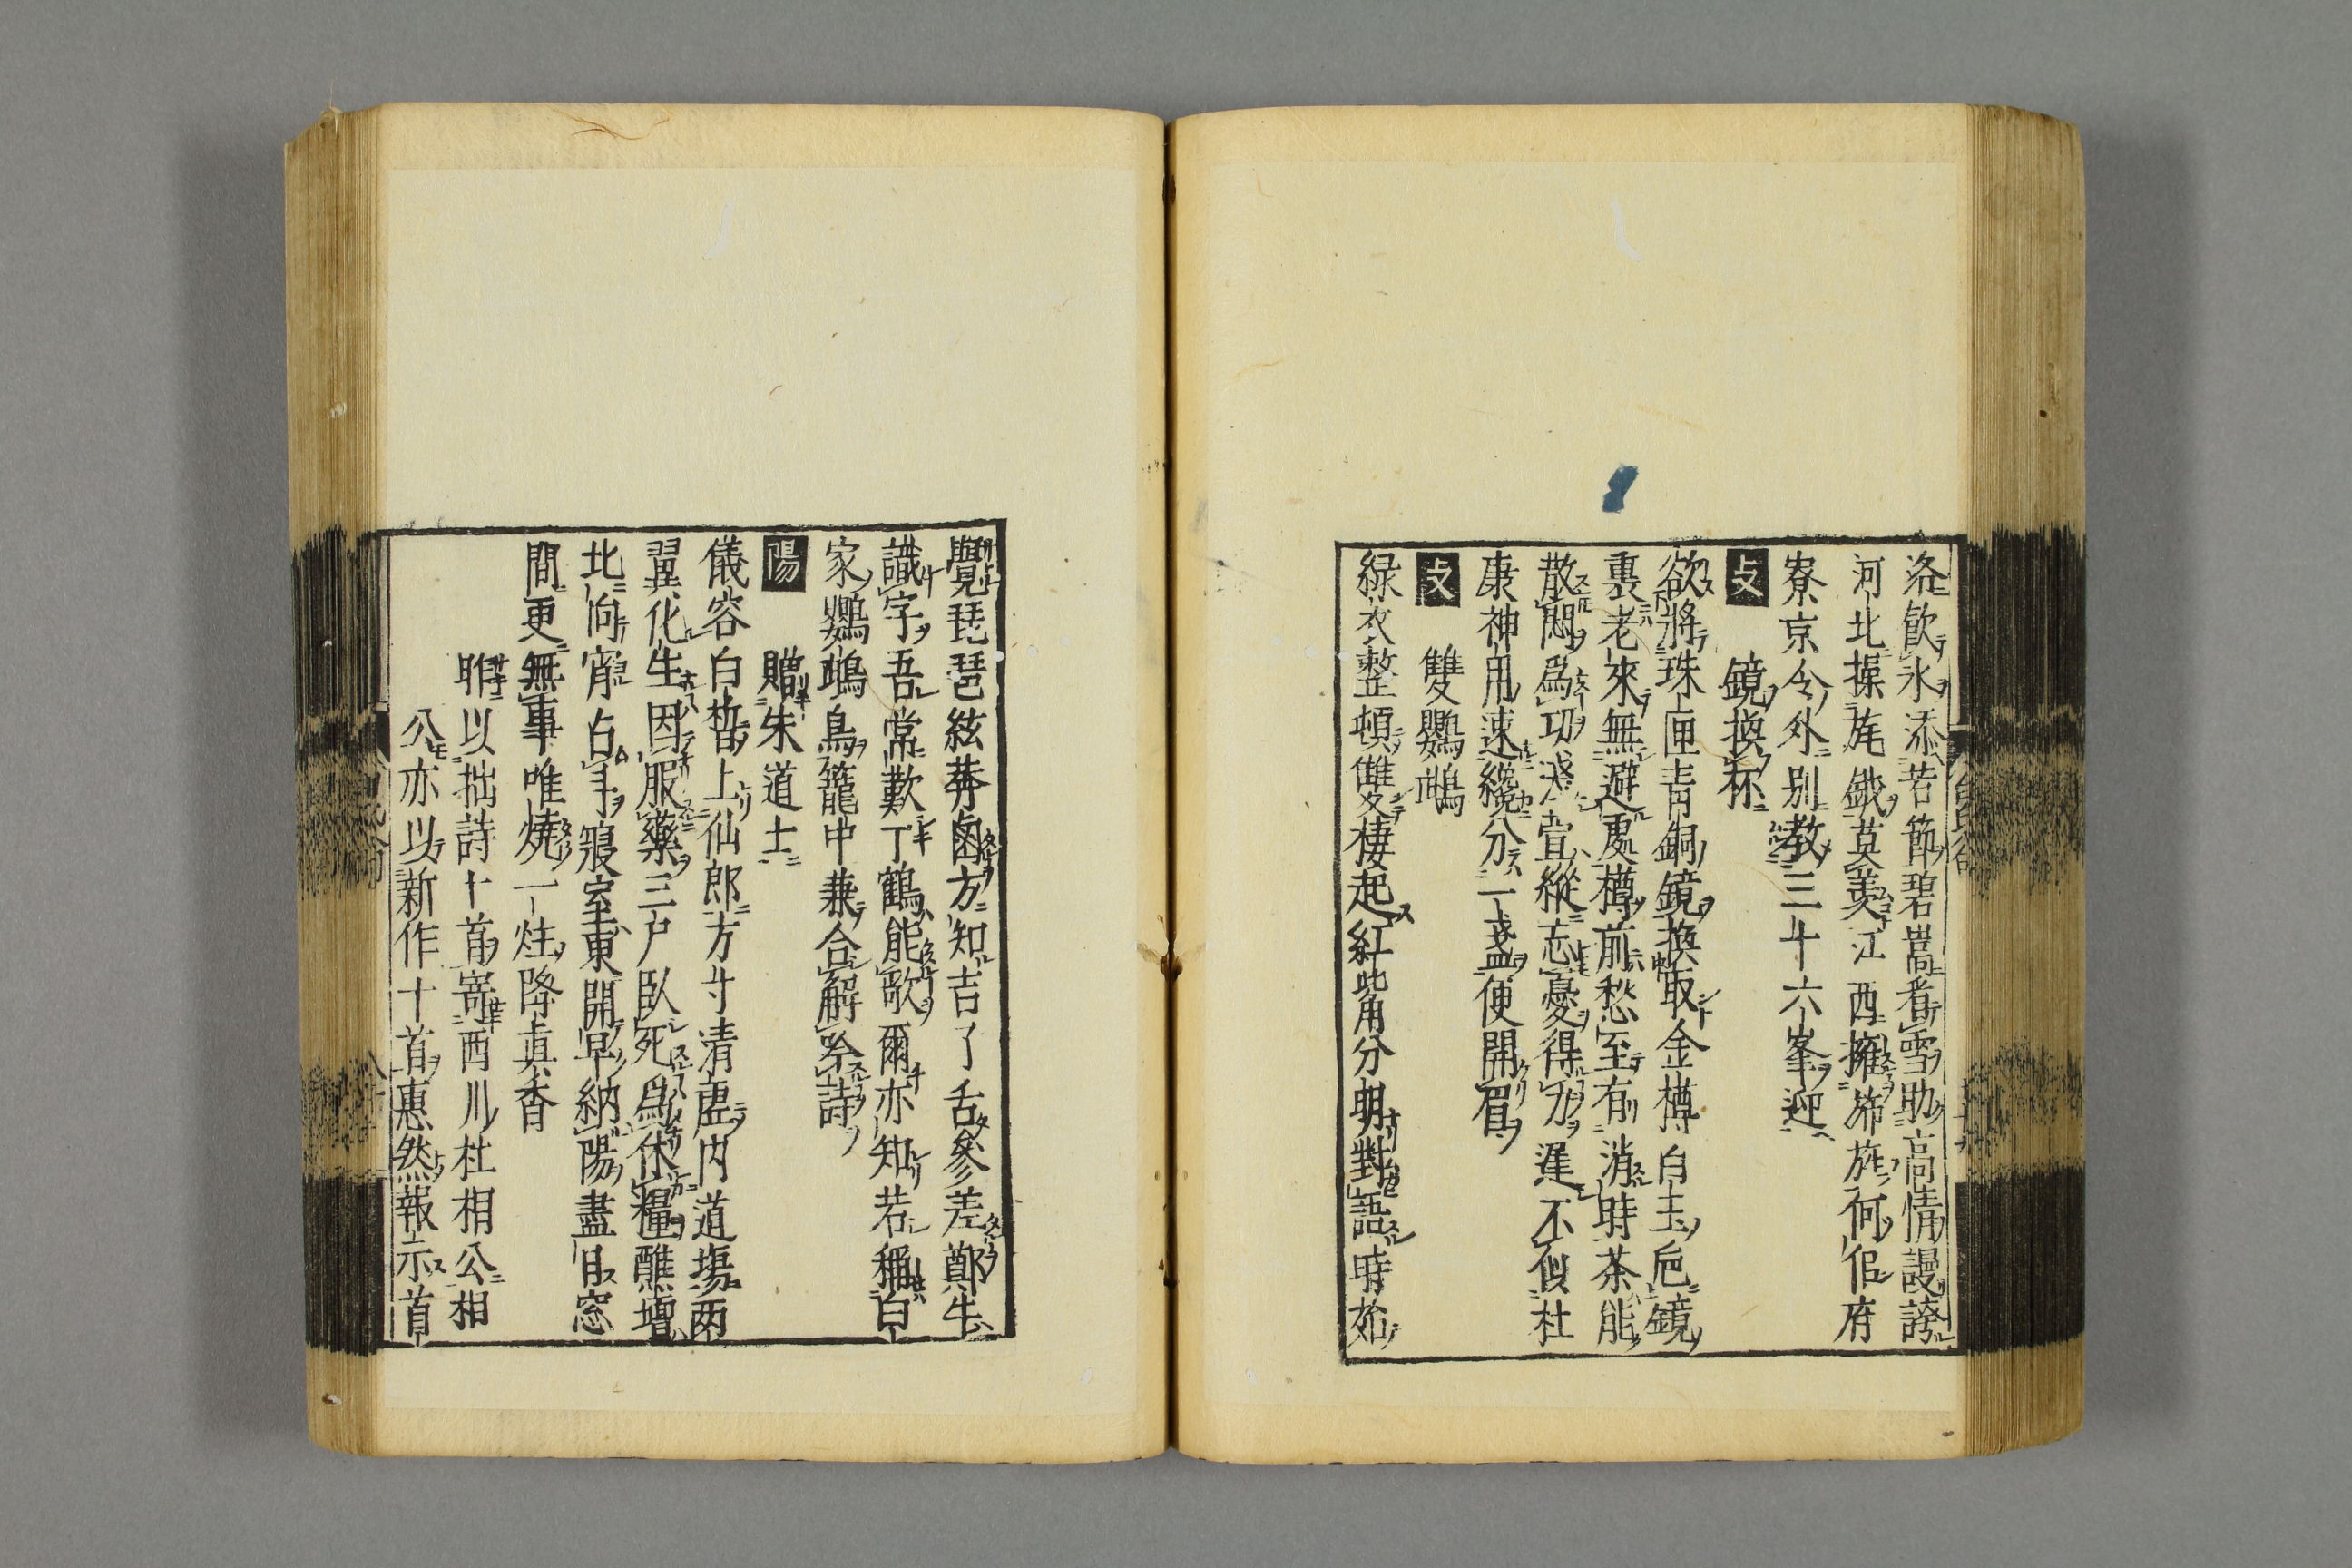 洛飲氷添苦節碧嵩看雪助高情謾誇
河北操旄鉞莫羨江西擁旆旌何佀府
寮京令外别教三十六峯迎
支　鏡換杯
欲將珠匣青銅鏡換取金樽白玉巵鏡
裏老來無避處樽前愁至有消時茶能
散悶爲功淺萱縱忘憂得力遲不似杜
康神用速纔分一盞便開眉
支　雙鸚鵡
緑衣整頓雙棲起紅觜分明對語時始
覺琵琶絃莽鹵方知吉了舌參差鄭牛
識字吾常歎丁鶴能歌爾亦知若稱白
家鸚鵡鳥籠中兼合解吟詩
陽　贈朱道士
儀容白晳上仙郎方寸清虛内道場兩
翼化生因服藥三尸臥死爲休糧醮壇
北向宵占斗寢室東開早納陽盡日窓
間更無事唯燒一炷降眞香
以拙詩十首寄西川杜相公相
公亦以新作十首惠然報示首